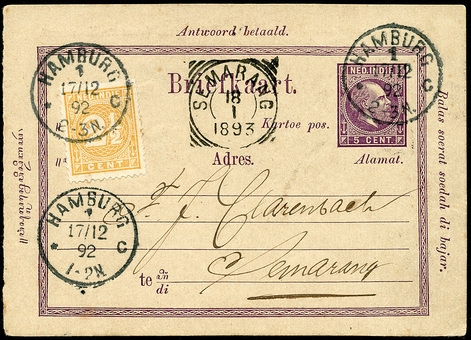 Antwoord betaald.
HAMBURG
1
17/12
92
2-3N.
C
SEMARANG
18
1
1893
HAMBURG
1
17/12
92
2-3N.
C
NED. INDIE
5 CENT.
CENT.
Briefkaart.
Kartoe pos.
Adres.
Alamat.
HAMBURG
1
17/12
92
1-2N.
C
F. J. Clarenbach
te in di
Semarang
Balas soerat soedah di bajar.